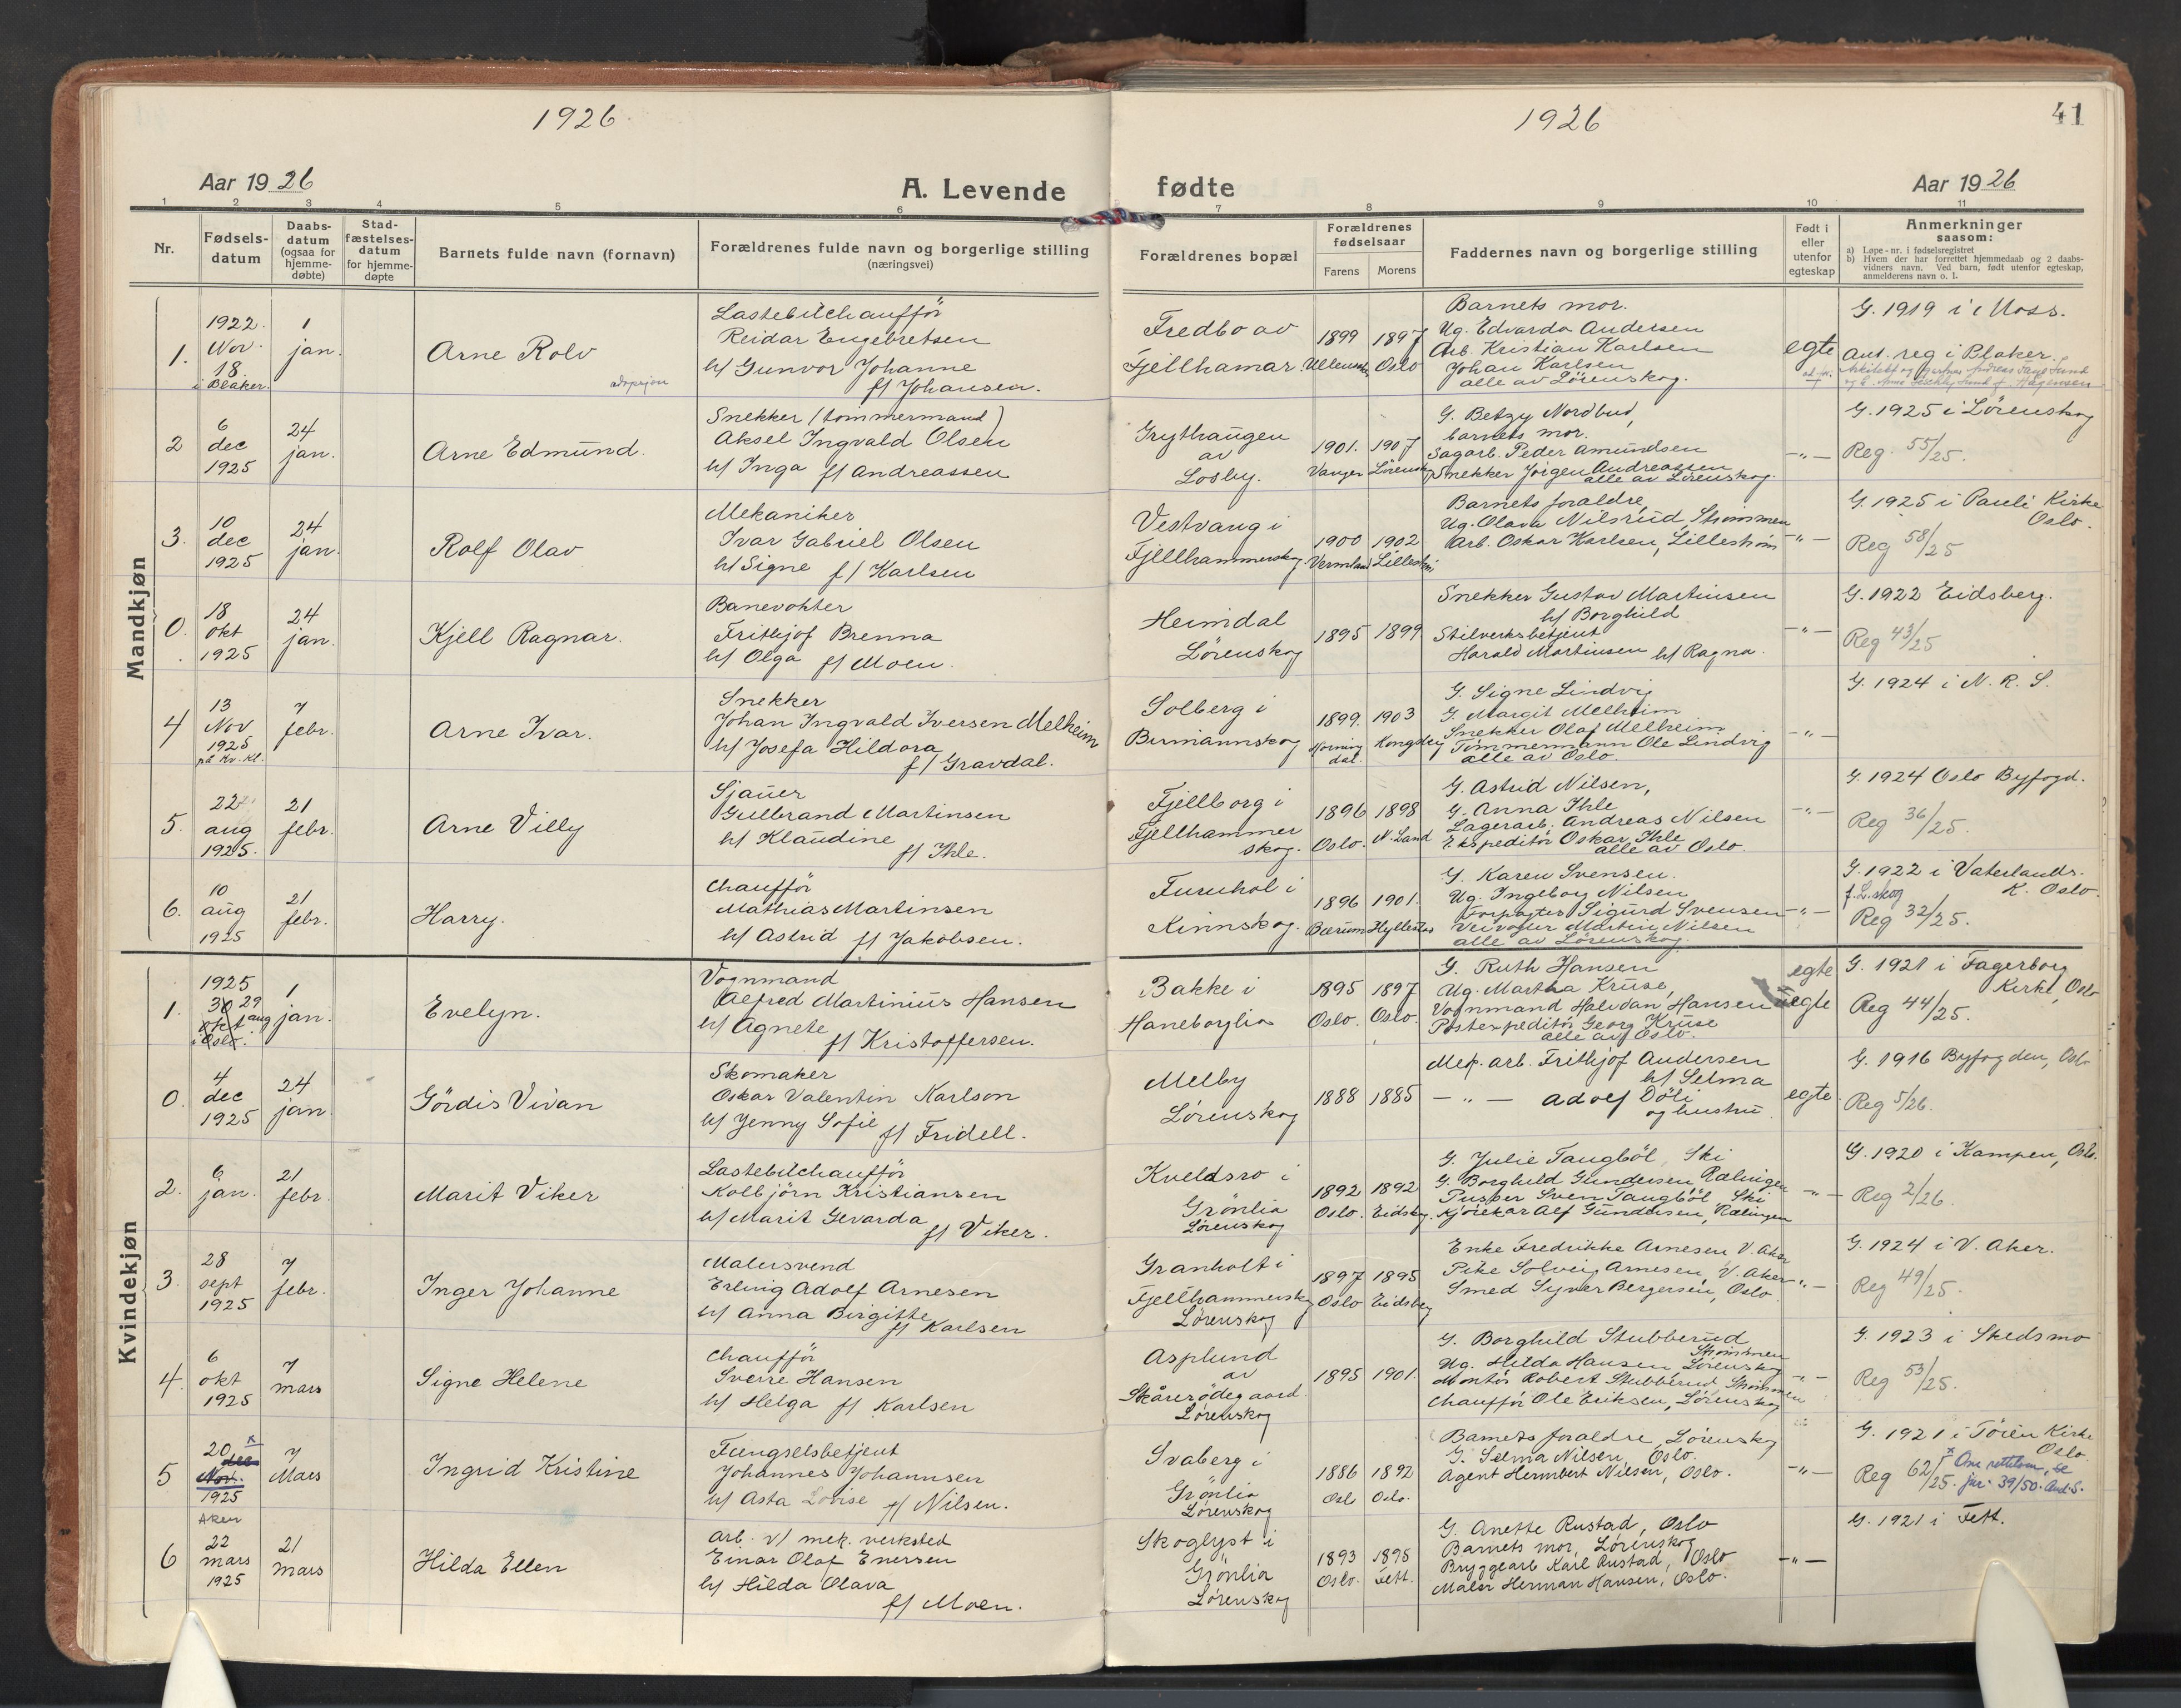 1926
1926
41
Aar 1926
A. Levende
fødte
Aar 1926
1 2 3 4 5 6 7 8 9 10 11
Nr.
Fødsels-
datum
Daabs-
datum
(ogsaa for
hjemme-
døbte)
Stad-
fæstelses-
datum
for hjemme-
døpte
Barnets fulde navn (fornavn)
Forældrenes fulde navn og borgerlige stilling
(næringsvei)
Forældrenes bopæl
Forældrenes
fødselsaar
Farens
Morens
Faddernes navn og borgerlige stilling
Født i
eller
utenfor
egteskap
Anmerkninger
saasom:
a) Løpe-nr. i fødselsregistret
b) Hvem der har forrettet hjemmedaab og 2 daabs-
vidners navn. Ved barn, født utenfor egteskap,
anmelderens navn o. l.
Mandkjøn
1.
1922.
Nov.
18
i Blaker.
1
jan.
Arne Rolv
adopsjon
Lastebilchaufför
Reidar Engebretsen
h/ Gunvor Johanne
f/ Johansen.
Fredbo av
Fjellhamar
1899 1897
Oslo
Barnets mor.
Ug. Edvarda Andersen
Arb. Kristian Karlsen
Johan Karlsen
alle av Lørenskog.
egte
G. 1919 i Moss.
Ant. reg i Blaker.
2
6
dec
1925
24
jan.
Arne Edmund.
Snekker (tömmermand)
Aksel Ingvald Olsen
h/ Inga f/ Andreassen
Grythaugen
av
Losby.
1901. 1907
Vanger Lørenskog
G. Betzy Nordbud,
barnets mor.
Sagarb. Peder Amundsen
Snekker Jörgen Andreassen
alle av Lørenskog.
-"-
G. 1925 i Lørenskog
Reg. 55/25.
3.
10
dec
1925
24
jan.
Rolf Olav
Mekaniker
Ivar Gabriel Olsen
h/ Signe f/ Karlsen
Vestvang i
Fjellhammerskog
1900 1902
Vermland Lilleström
Barnets foraldre,
Ug. Olava Nilsrud, Strömmen
Arb. Oskar Karlsen, Lilleström
-"-
G. 1925 i Pauli Kirke
Oslo.
Reg 58/25
0.
18
okt
1925
24
jan.
Kjell Ragnar.
Banevokter
Frithjof Brenna
h/ Olga f/ Moen.
Heimdal
Lørenskog
1895 1899
Snekker Gustav Martinsen
h/ Borghild
Stilverksbetjent
Harald Martinsen h/ Ragna.
-"-
G. 1922 Eidsberg.
Reg 43/25
4
13
Nov
1925
på Kv. Kl.
7
febr.
Arne Ivar.
Snekker
Johan Ingvald Iversen Melheim
h/ Josefa Hildora
f/ Gravdal.
Solberg i
Bermannskog
1899. 1903
Horning
dal. Kongsberg
G. Signe Lindvig
G. Margit Melheim
Snekker Olaf Melheim
Tömmermann Ole Lindvig
alle av Oslo.
-"-
G. 1924 i N. R. S.
5.
22
aug
1925.
21
febr.
Arne Villy
Sjauer
Gulbrand Martinsen
h/ Klaudine
f/ Ihle.
Fjellborg i
Fjellhammer
skog.
1896 1898
Oslo. N. Land
G. Astrid Nilsen,
G. Anna Ihle
Lagerarb. Andreas Nilsen
Ekspeditör Oskar Ihle
alle av Oslo.
-"-
G. 1924 Oslo Byfogd.
Reg 36/25.
6.
10
aug
1925
21
febr.
Harry.
Chaufför
Mathias Martinsen
h/ Astrid f/ Jakobsen.
Furuhol i
Kinnskog.
1896 1901.
Bærum Hyllestad
G. Karen Svensen.
Ug. Ingeborg Nilsen
Forpagter Sigurd Svensen
Veivokter Martin Nilsen
alle av Lørenskog.
-"-
G. 1922 i Vaterlands.
f. L.skog K. Oslo.
Reg 32/25.
Kvindekjøn
1.
1925
30 29
okt aug
i Oslo.
1
jan.
Evelyn.
Vognmand
Alfred Martinius Hansen
h/ Agnete
f/ Kristoffersen.
Bakke i
Haneborglia
1895 1897
Oslo. Oslo.
G. Ruth Hansen
Ug. Martha Kruse,
Vognmand Halvdan Hansen
Postexpeditör Georg Kruse
alle av Oslo.
egte
uegte
G. 1921 i Fagerborg
Kirke, Oslo
Reg 44/25.
0.
4
dec
1925
24
jan.
Gördis Vivan
Skomaker
Oskar Valentin Karlson
h/ Jenny Sofie
f/ Fridell.
Melby
Lørenskog
1888 1885
Mek. arb. Frithjof Andersen
h/ Selma
-"- Adolf Döli
og hustru
egte.
G. 1916 Byfogden, Oslo
Reg 5/26.
2.
6
jan.
21
febr.
Marit Viker
Lastebilchaufför
Kolbjörn Kristiansen
h/ Marit Gevarda
f/ Viker.
Kveldsro i
Grönlia
Lørenskog
1892 1892
Oslo. Eidsberg.
G. Julie Taugböl, Ski
G. Borghild Gundersen Rælingen
Pusser Sven Taugböl, Ski
Kjörekar Alf Gundersen, Rælingen
-"-
G. 1920 i Kampen, Oslo.
Reg 2/26.
3.
28
sept
1925
7
febr.
Inger Johanne
Malersvend
Erling Adolf Arnesen
h/ Anna Birgitte
f/ Karlsen
Granholt i
Fjellhammerskog
Lørenskog
1897 1895
Oslo Eidsberg
Enke Fredrikke Arnesen V. Aker
Pike Solveig Arnesen, V. Aker
Smed Syver Bergersen, Oslo.
-"-
G. 1924 i V. Aker.
Reg 49/25.
4.
6
okt
1925
7
mars
Signe Helene
Chaufför
Sverre Hansen
h/ Helga f/ Karlsen
Asplund
av
Skårerödegaard.
Lørenskog
1895 1901.
G. Borghild Stubberud
Strömmen
Ug. Hilda Hansen Lørenskog
Montör Robert Stubberud Strömmen
Chaufför Ole Eriksen, Lørenskog
-"-
G. 1923 i Skedsmo
Reg 53/25.
5
20 x
dec
Nov.
1925
Aker
7
Mars
Ingrid Kristine
Fængselsbetjent
Johannes Johannsen
h/ Asta Lovise f/ Nilsen.
Svaberg i
Grönlia
Lørenskog
1886 1892
Osl Oslo.
Barnets foraldre, Lørenskog
G. Selma Nilsen, Oslo.
Agent Hermbert Nilsen, Oslo.
-"-
G. 1921 i Töien Kirke
Oslo.
Reg 62/25.
x Om rettelsen, se
jnr. 39/50.
6
22
mars
1925
21
mars
Hilda Ellen
Arb. v/ mek. verksted
Einar Olaf Enersen
h/ Hilda Olava
f/ Moen.
Skoglyst i
Grönlia
Lørenskog
1893 1895
Oslo. Fett.
G. Anette Rustad, Oslo
Barnets mor, Lørenskog
Bryggearb Karl Rustad, Oslo
Maler Herman Hansen, Oslo.
-"-
G. 1921 i Fett.